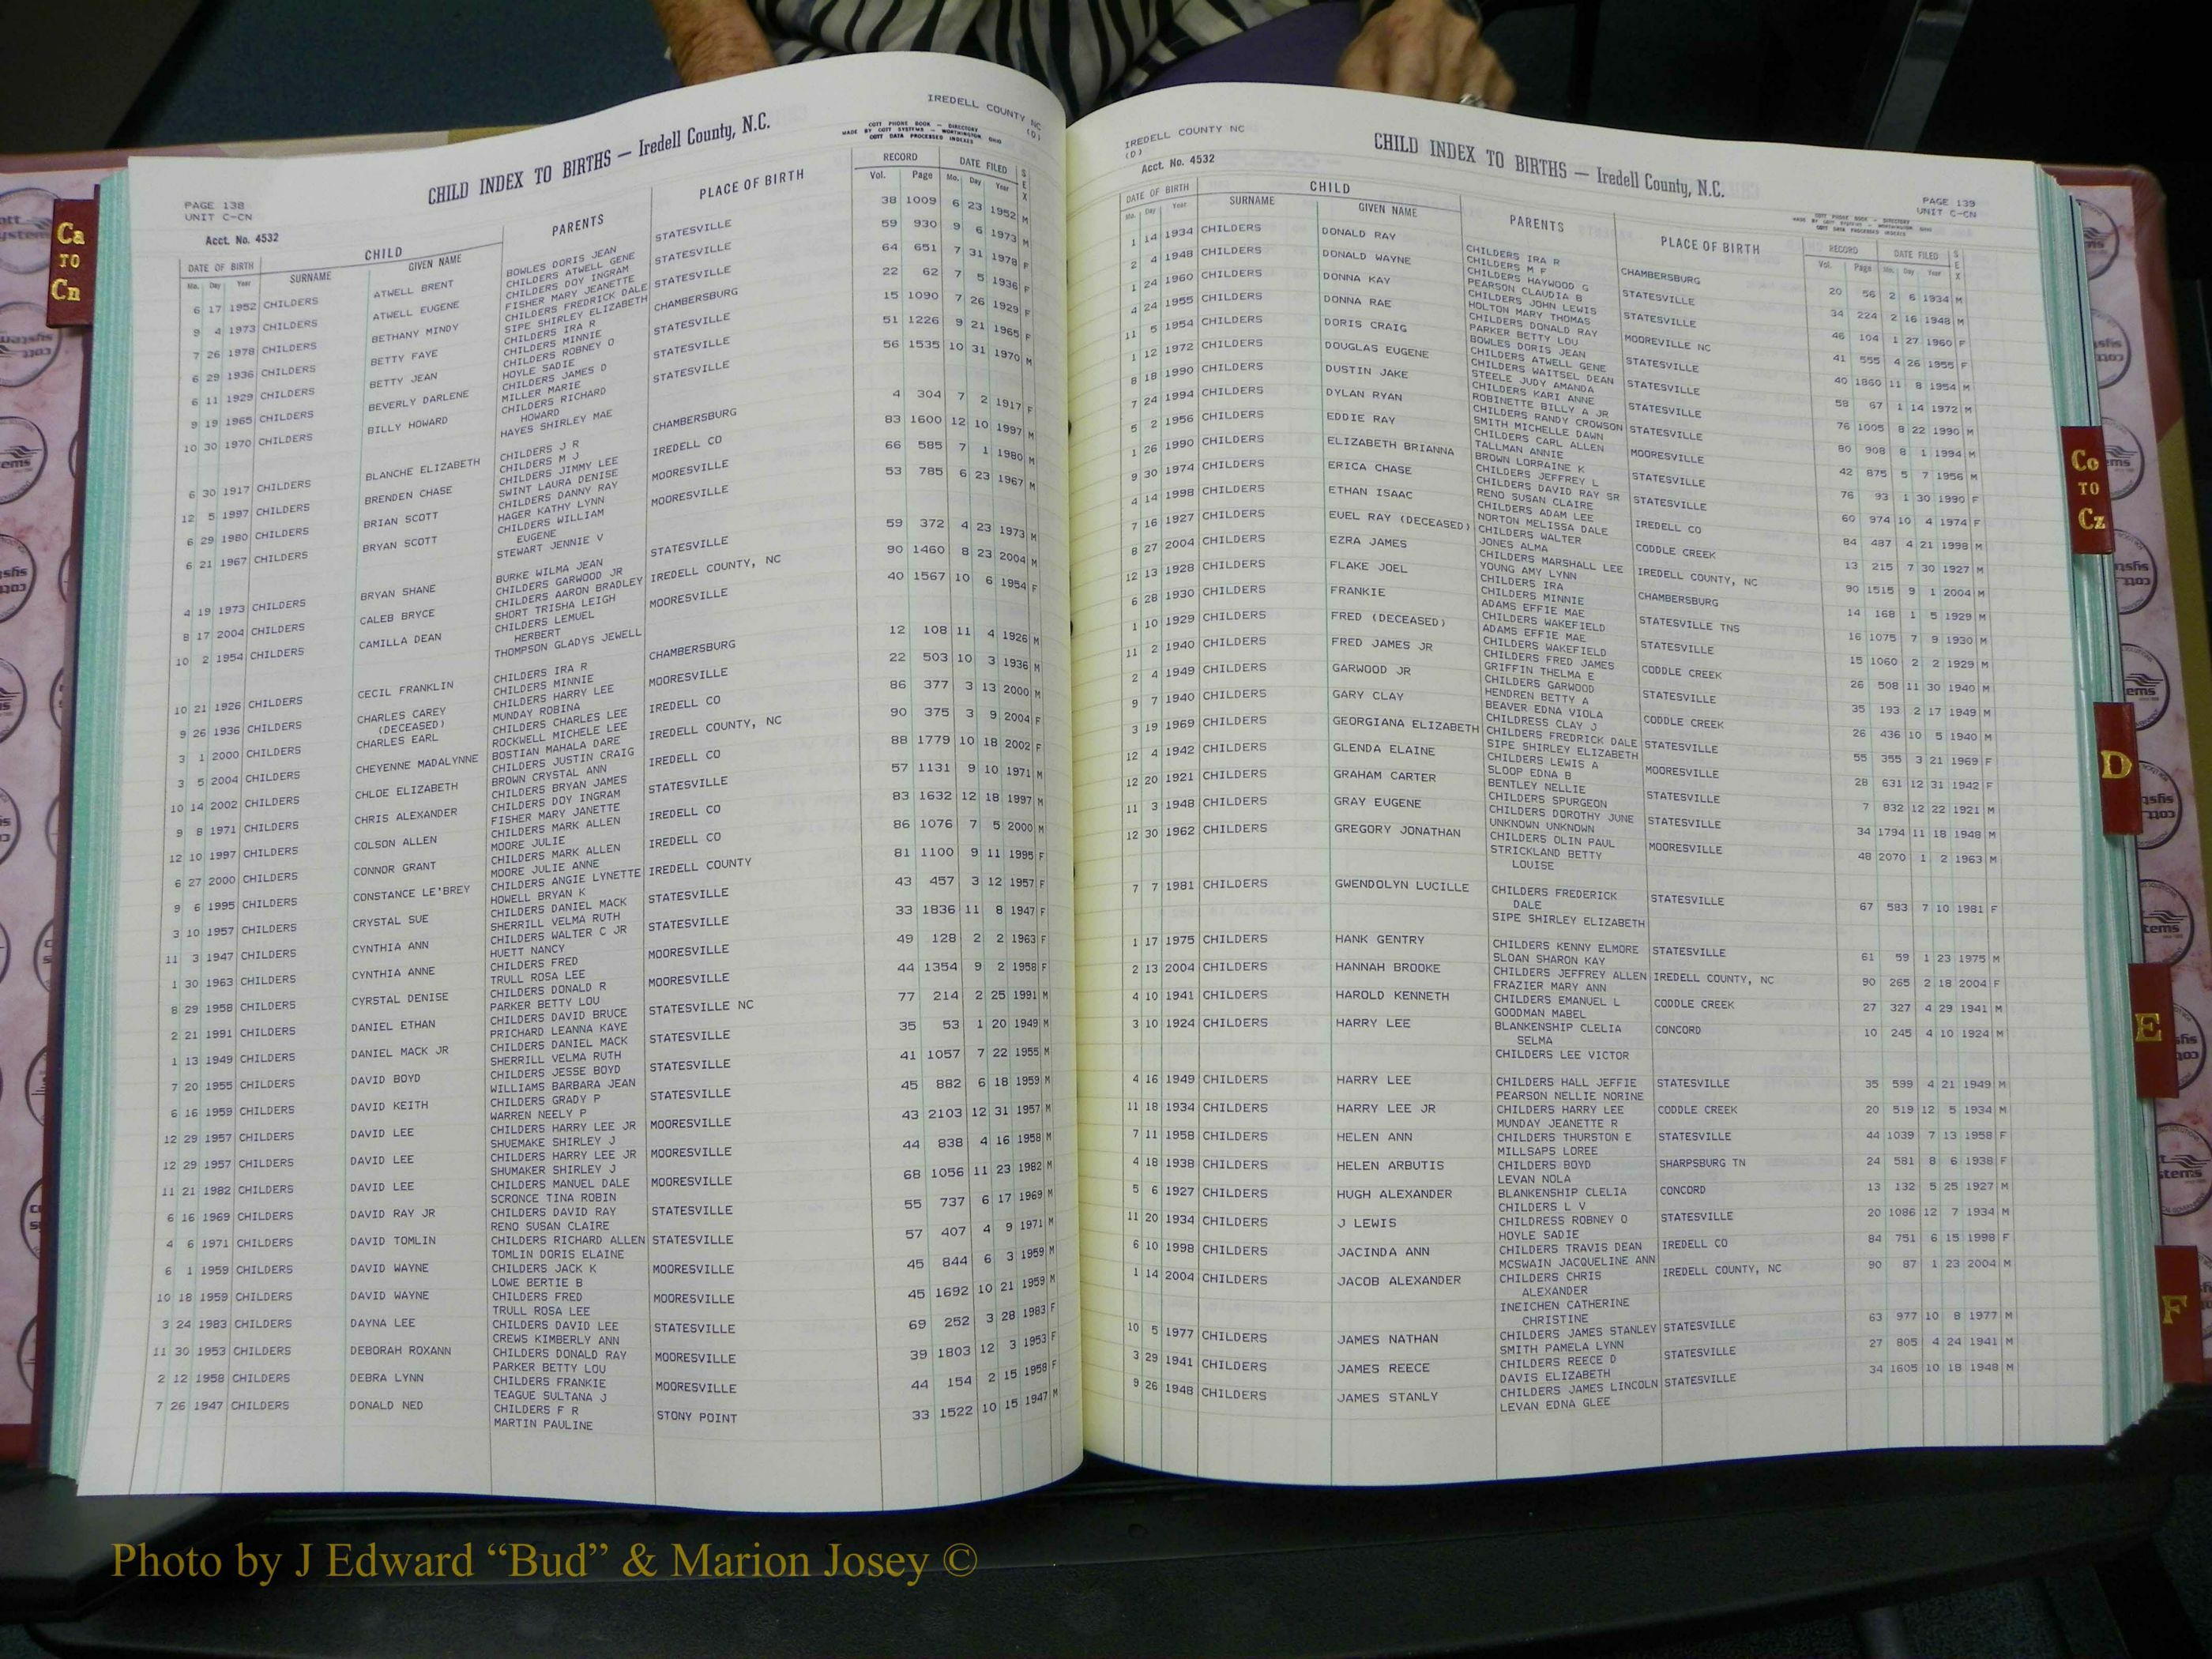 IREDELL COUNTY NC
(D)
COTT PHONE BOOK — DIRECTORY
MADE BY COTT SYSTEMS — WORTHINGTON, OHIO
COTT DATA PROCESSED INDEXES
CHILD INDEX TO BIRTHS — Iredell County, N.C.
PAGE 138
UNIT C-CN
Acct. No. 4532
DATE OF BIRTH CHILD PARENTS PLACE OF BIRTH RECORD DATE FILED SEX
Mo. Day Year SURNAME GIVEN NAME Vol. Page Mo. Day Year
6 17 1952 CHILDERS ATWELL BRENT BOWLES DORIS JEAN STATESVILLE 38 1009 6 23 1952 M
CHILDERS ATWELL GENE
9 4 1973 CHILDERS ATWELL EUGENE CHILDERS DOY INGRAM STATESVILLE 59 930 9 6 1973 M
FISHER MARY JEANETTE
7 26 1978 CHILDERS BETHANY MINDY CHILDERS FREDRICK DALE STATESVILLE 64 651 7 31 1978 F
SIPE SHIRLEY ELIZABETH
6 29 1936 CHILDERS BETTY FAYE CHILDERS IRA R CHAMBERSBURG 22 62 7 5 1936 F
CHILDERS MINNIE
6 11 1929 CHILDERS BETTY JEAN CHILDERS ROBNEY O STATESVILLE 15 1090 7 26 1929 F
HOYLE SADIE
9 19 1965 CHILDERS BEVERLY DARLENE CHILDERS JAMES D STATESVILLE 51 1226 9 21 1965 F
MILLER MARIE
10 30 1970 CHILDERS BILLY HOWARD CHILDERS RICHARD STATESVILLE 56 1535 10 31 1970 M
HOWARD
HAYES SHIRLEY MAE
6 30 1917 CHILDERS BLANCHE ELIZABETH CHILDERS J R CHAMBERSBURG 4 304 7 2 1917 F
CHILDERS M J
12 5 1997 CHILDERS BRENDEN CHASE CHILDERS JIMMY LEE IREDELL CO 83 1600 12 10 1997 M
SWINT LAURA DENISE
6 29 1980 CHILDERS BRIAN SCOTT CHILDERS DANNY RAY MOORESVILLE 66 585 7 1 1980 M
HAGER KATHY LYNN
6 21 1967 CHILDERS BRYAN SCOTT CHILDERS WILLIAM MOORESVILLE 53 785 6 23 1967 M
EUGENE
STEWART JENNIE V
4 19 1973 CHILDERS BRYAN SHANE BURKE WILMA JEAN STATESVILLE 59 372 4 23 1973 M
CHILDERS GARWOOD JR
8 17 2004 CHILDERS CALEB BRYCE CHILDERS AARON BRADLEY IREDELL COUNTY, NC 90 1460 8 23 2004 M
SHORT TRISHA LEIGH
10 2 1954 CHILDERS CAMILLA DEAN CHILDERS LEMUEL MOORESVILLE 40 1567 10 6 1954 F
HERBERT
THOMPSON GLADYS JEWELL
10 21 1926 CHILDERS CECIL FRANKLIN CHILDERS IRA R CHAMBERSBURG 12 108 11 4 1926 M
CHILDERS MINNIE
9 26 1936 CHILDERS CHARLES CAREY CHILDERS HARRY LEE MOORESVILLE 22 503 10 3 1936 M
(DECEASED) MUNDAY ROBINA
3 1 2000 CHILDERS CHARLES EARL CHILDERS CHARLES LEE IREDELL CO 86 377 3 13 2000 M
ROCKWELL MICHELE LEE
3 5 2004 CHILDERS CHEYENNE MADALYNNE BOSTIAN MAHALA DARE IREDELL COUNTY, NC 90 375 3 9 2004 F
CHILDERS JUSTIN CRAIG
10 14 2002 CHILDERS CHLOE ELIZABETH BROWN CRYSTAL ANN IREDELL CO 88 1779 10 18 2002 F
CHILDERS BRYAN JAMES
9 8 1971 CHILDERS CHRIS ALEXANDER CHILDERS DOY INGRAM STATESVILLE 57 1131 9 10 1971 M
FISHER MARY JANETTE
12 10 1997 CHILDERS COLSON ALLEN CHILDERS MARK ALLEN IREDELL CO 83 1632 12 18 1997 M
MOORE JULIE
6 27 2000 CHILDERS CONNOR GRANT CHILDERS MARK ALLEN IREDELL CO 86 1076 7 5 2000 M
MOORE JULIE ANNE
9 6 1995 CHILDERS CONSTANCE LE'BREY CHILDERS ANGIE LYNETTE IREDELL COUNTY 81 1100 9 11 1995 F
HOWELL BRYAN K
3 10 1957 CHILDERS CRYSTAL SUE CHILDERS DANIEL MACK STATESVILLE 43 457 3 12 1957 F
SHERRILL VELMA RUTH
11 3 1947 CHILDERS CYNTHIA ANN CHILDERS WALTER C JR STATESVILLE 33 1836 11 8 1947 F
HUETT NANCY
1 30 1963 CHILDERS CYNTHIA ANNE CHILDERS FRED MOORESVILLE 49 128 2 2 1963 F
TRULL ROSA LEE
8 29 1958 CHILDERS CYRSTAL DENISE CHILDERS DONALD R MOORESVILLE 44 1354 9 2 1958 F
PARKER BETTY LOU
2 21 1991 CHILDERS DANIEL ETHAN CHILDERS DAVID BRUCE STATESVILLE NC 77 214 2 25 1991 M
PRICHARD LEANNA KAYE
1 13 1949 CHILDERS DANIEL MACK JR CHILDERS DANIEL MACK STATESVILLE 35 53 1 20 1949 M
SHERRILL VELMA RUTH
7 20 1955 CHILDERS DAVID BOYD CHILDERS JESSE BOYD STATESVILLE 41 1057 7 22 1955 M
WILLIAMS BARBARA JEAN
6 16 1959 CHILDERS DAVID KEITH CHILDERS GRADY P STATESVILLE 45 882 6 18 1959 M
WARREN NEELY P
12 29 1957 CHILDERS DAVID LEE CHILDERS HARRY LEE JR MOORESVILLE 43 2103 12 31 1957 M
SHUEMAKE SHIRLEY J
12 29 1957 CHILDERS DAVID LEE CHILDERS HARRY LEE JR MOORESVILLE 44 838 4 16 1958 M
SHUMAKER SHIRLEY J
11 21 1982 CHILDERS DAVID LEE CHILDERS MANUEL DALE MOORESVILLE 68 1056 11 23 1982 M
SCRONCE TINA ROBIN
6 16 1969 CHILDERS DAVID RAY JR CHILDERS DAVID RAY STATESVILLE 55 737 6 17 1969 M
RENO SUSAN CLAIRE
4 6 1971 CHILDERS DAVID TOMLIN CHILDERS RICHARD ALLEN STATESVILLE 57 407 4 9 1971 M
TOMLIN DORIS ELAINE
6 1 1959 CHILDERS DAVID WAYNE CHILDERS JACK K MOORESVILLE 45 844 6 3 1959 M
LOWE BERTIE B
10 18 1959 CHILDERS DAVID WAYNE CHILDERS FRED MOORESVILLE 45 1692 10 21 1959 M
TRULL ROSA LEE
3 24 1983 CHILDERS DAYNA LEE CHILDERS DAVID LEE STATESVILLE 69 252 3 28 1983 F
CREWS KIMBERLY ANN
11 30 1953 CHILDERS DEBORAH ROXANN CHILDERS DONALD RAY MOORESVILLE 39 1803 12 3 1953 F
PARKER BETTY LOU
2 12 1958 CHILDERS DEBRA LYNN CHILDERS FRANKIE MOORESVILLE 44 154 2 15 1958 F
TEAGUE SULTANA J
7 26 1947 CHILDERS DONALD NED CHILDERS F R STONY POINT 33 1522 10 15 1947 M
MARTIN PAULINE
IREDELL COUNTY NC
(D)
Acct. No. 4532
CHILD INDEX TO BIRTHS — Iredell County, N.C.
PAGE 139
UNIT C-CN
COTT PHONE BOOK — DIRECTORY
MADE BY COTT SYSTEMS — WORTHINGTON, OHIO
COTT DATA PROCESSED INDEXES
DATE OF BIRTH CHILD PARENTS PLACE OF BIRTH RECORD DATE FILED SEX
Mo. Day Year SURNAME GIVEN NAME Vol. Page Mo. Day Year
1 14 1934 CHILDERS DONALD RAY CHILDERS IRA R CHAMBERSBURG 20 56 2 6 1934 M
CHILDERS M F
2 4 1948 CHILDERS DONALD WAYNE CHILDERS HAYWOOD G STATESVILLE 34 224 2 16 1948 M
PEARSON CLAUDIA B
1 24 1960 CHILDERS DONNA KAY CHILDERS JOHN LEWIS STATESVILLE 46 104 1 27 1960 F
HOLTON MARY THOMAS
4 24 1955 CHILDERS DONNA RAE CHILDERS DONALD RAY MOOREVILLE NC 41 555 4 26 1955 F
PARKER BETTY LOU
11 5 1954 CHILDERS DORIS CRAIG BOWLES DORIS JEAN STATESVILLE 40 1860 11 8 1954 M
CHILDERS ATWELL GENE
1 12 1972 CHILDERS DOUGLAS EUGENE CHILDERS WAITSEL DEAN STATESVILLE 58 67 1 14 1972 M
STEELE JUDY AMANDA
8 18 1990 CHILDERS DUSTIN JAKE CHILDERS KARI ANNE STATESVILLE 76 1005 8 22 1990 M
ROBINETTE BILLY A JR
7 24 1994 CHILDERS DYLAN RYAN CHILDERS RANDY CROWSON STATESVILLE 80 908 8 1 1994 M
SMITH MICHELLE DAWN
5 2 1956 CHILDERS EDDIE RAY CHILDERS CARL ALLEN MOORESVILLE 42 875 5 7 1956 M
TALLMAN ANNIE
1 26 1990 CHILDERS ELIZABETH BRIANNA BROWN LORRAINE K STATESVILLE 76 93 1 30 1990 F
CHILDERS JEFFREY L
9 30 1974 CHILDERS ERICA CHASE CHILDERS DAVID RAY SR STATESVILLE 60 974 10 4 1974 F
RENO SUSAN CLAIRE
4 14 1998 CHILDERS ETHAN ISAAC CHILDERS ADAM LEE IREDELL CO 84 487 4 21 1998 M
NORTON MELISSA DALE
7 16 1927 CHILDERS EUEL RAY (DECEASED) CHILDERS WALTER CODDLE CREEK 13 215 7 30 1927 M
JONES ALMA
8 27 2004 CHILDERS EZRA JAMES CHILDERS MARSHALL LEE IREDELL COUNTY, NC 90 1515 9 1 2004 M
YOUNG AMY LYNN
12 13 1928 CHILDERS FLAKE JOEL CHILDERS IRA CHAMBERSBURG 14 168 1 5 1929 M
CHILDERS MINNIE
6 28 1930 CHILDERS FRANKIE ADAMS EFFIE MAE STATESVILLE TNS 16 1075 7 9 1930 M
CHILDERS WAKEFIELD
1 10 1929 CHILDERS FRED (DECEASED) ADAMS EFFIE MAE STATESVILLE 15 1060 2 2 1929 M
CHILDERS WAKEFIELD
11 2 1940 CHILDERS FRED JAMES JR CHILDERS FRED JAMES CODDLE CREEK 26 508 11 30 1940 M
GRIFFIN THELMA E
2 4 1949 CHILDERS GARWOOD JR CHILDERS GARWOOD STATESVILLE 35 193 2 17 1949 M
HENDREN BETTY A
9 7 1940 CHILDERS GARY CLAY BEAVER EDNA VIOLA CODDLE CREEK 26 436 10 5 1940 M
CHILDRESS CLAY J
3 19 1969 CHILDERS GEORGIANA ELIZABETH CHILDERS FREDRICK DALE STATESVILLE 55 355 3 21 1969 F
SIPE SHIRLEY ELIZABETH
12 4 1942 CHILDERS GLENDA ELAINE CHILDERS LEWIS A MOORESVILLE 28 631 12 31 1942 F
SLOOP EDNA B
12 20 1921 CHILDERS GRAHAM CARTER BENTLEY NELLIE STATESVILLE 7 832 12 22 1921 M
CHILDERS SPURGEON
11 3 1948 CHILDERS GRAY EUGENE CHILDERS DOROTHY JUNE STATESVILLE 34 1794 11 18 1948 M
UNKNOWN UNKNOWN
12 30 1962 CHILDERS GREGORY JONATHAN CHILDERS OLIN PAUL MOORESVILLE 48 2070 1 2 1963 M
STRICKLAND BETTY
LOUISE
7 7 1981 CHILDERS GWENDOLYN LUCILLE CHILDERS FREDERICK STATESVILLE 67 583 7 10 1981 F
DALE
SIPE SHIRLEY ELIZABETH
1 17 1975 CHILDERS HANK GENTRY CHILDERS KENNY ELMORE STATESVILLE 61 59 1 23 1975 M
SLOAN SHARON KAY
2 13 2004 CHILDERS HANNAH BROOKE CHILDERS JEFFREY ALLEN IREDELL COUNTY, NC 90 265 2 18 2004 F
FRAZIER MARY ANN
4 10 1941 CHILDERS HAROLD KENNETH CHILDERS EMANUEL L CODDLE CREEK 27 327 4 29 1941 M
GOODMAN MABEL
3 10 1924 CHILDERS HARRY LEE BLANKENSHIP CLELIA CONCORD 10 245 4 10 1924 M
SELMA
CHILDERS LEE VICTOR
4 16 1949 CHILDERS HARRY LEE CHILDERS HALL JEFFIE STATESVILLE 35 599 4 21 1949 M
PEARSON NELLIE NORINE
11 18 1934 CHILDERS HARRY LEE JR CHILDERS HARRY LEE CODDLE CREEK 20 519 12 5 1934 M
MUNDAY JEANETTE R
7 11 1958 CHILDERS HELEN ANN CHILDERS THURSTON E STATESVILLE 44 1039 7 13 1958 F
MILLSAPS LOREE
4 18 1938 CHILDERS HELEN ARBUTIS CHILDERS BOYD SHARPSBURG TN 24 581 8 6 1938 F
LEVAN NOLA
5 6 1927 CHILDERS HUGH ALEXANDER BLANKENSHIP CLELIA CONCORD 13 132 5 25 1927 M
CHILDERS L V
11 20 1934 CHILDERS J LEWIS CHILDRESS ROBNEY O STATESVILLE 20 1086 12 7 1934 M
HOYLE SADIE
6 10 1998 CHILDERS JACINDA ANN CHILDERS TRAVIS DEAN IREDELL CO 84 751 6 15 1998 F
MCSWAIN JACQUELINE ANN
1 14 2004 CHILDERS JACOB ALEXANDER CHILDERS CHRIS IREDELL COUNTY, NC 90 87 1 23 2004 M
ALEXANDER
INEICHEN CATHERINE
CHRISTINE
10 5 1977 CHILDERS JAMES NATHAN CHILDERS JAMES STANLEY STATESVILLE 63 977 10 8 1977 M
SMITH PAMELA LYNN
3 29 1941 CHILDERS JAMES REECE CHILDERS REECE D STATESVILLE 27 805 4 24 1941 M
DAVIS ELIZABETH
9 26 1948 CHILDERS JAMES STANLY CHILDERS JAMES LINCOLN STATESVILLE 34 1605 10 18 1948 M
LEVAN EDNA GLEE
Ca
TO
Cn
Co
TO
Cz
D
E
F
Photo by J Edward “Bud” & Marion Josey ©